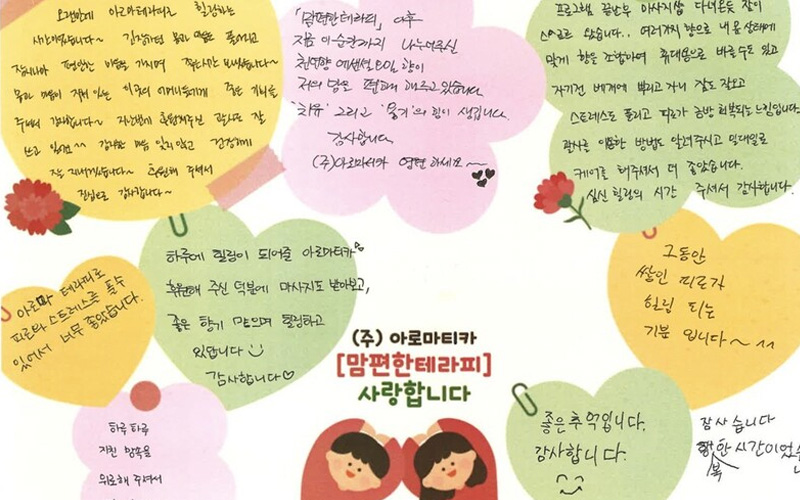 오랜만에 아로마테라피로 힐링하는
시간이었습니다~ 긴장하던 몸과 마음도 풀어지고
잠시나마 편안한 마음을 가지며
몸과 마음이 지쳐 있는 이곳의 어머니들에게 좋은 기회를
주셔서 감사합니다~ 지난번에 후원해주신 괄사도 잘
쓰고 있어요^^ 감사한 마음 잊지않고 건강하게
잘 지내겠습니다~ 후원해 주셔서
진심으로 감사합니다~
「맘편한테라피」 이후
지금 이 순간까지 나누어주신
천연향 에센셜 OIL 향이
저의 맘을 편하게 해주고 있습니다.
'치유' 그리고 '용기'의 힘이 생깁니다.
감사합니다.
(주)아로마티카 영원하세요~
프로그램 끝난후 마사지샵 다녀온듯 잠이
스르르 왔습니다.. 여러가지 향으로 내 몸 상태에
맞게 향을 조합하여 휴대용으로 바를수도 있고
자기전 베개에 뿌리고 자니 잠도 잘오고
스트레스도 풀리고 피로가 금방 회복되는 느낌입니다.
괄사를 이용한 방법도 알려주시고 일대일로
케어를 해주셔서 더 좋았습니다.
심신 힐링의 시간 주셔서 감사합니다.
아로마 테라피로
피로와 스트레스를 풀수
있어서 너무 좋았습니다.
하루에 힐링이 되어줄 아로마티카
후원해 주신 덕분에 마사지도 받아보고,
좋은 향기 맡으며 힐링하고
있답니다
감사합니다♡
그동안
쌓인 피로가
힐링 되는
기분 입니다~ ^^
(주) 아로마티카
[맘편한테라피]
사랑합니다
하루 하루
지친 맘속을
위로해 주셔서
좋은추억입니다.
감사합니다.
감사습니다
한 시간이었
복